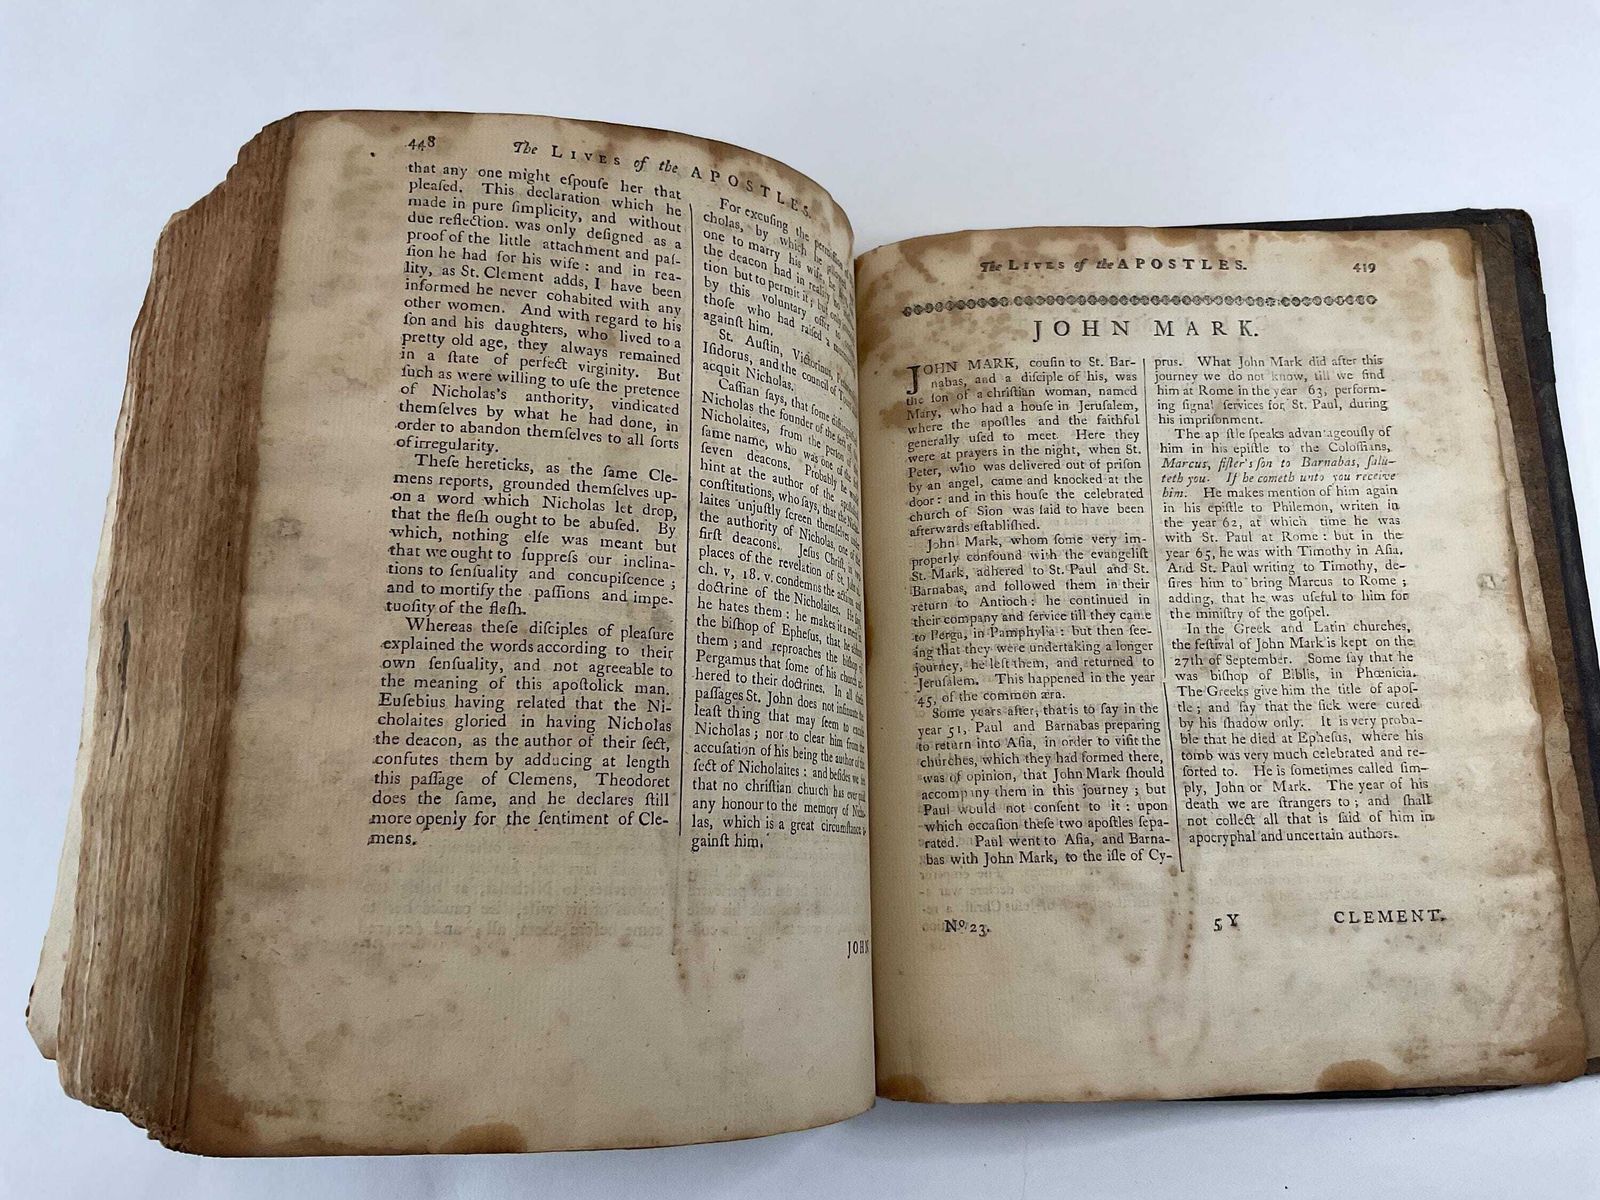 448
The LIVES of the APOSTLES.
that any one might eſpouſe her that
pleaſed. This declaration which he
made in pure ſimplicity, and without
due reflection. was only deſigned as a
proof of the little attachment and paſ-
ſion he had for his wife: and in rea-
lity, as St. Clement adds, I have been
informed he never cohabited with any
other women. And with regard to his
ſon and his daughters, who lived to a
pretty old age, they always remained
in a ſtate of perfect virginity. But
ſuch as were willing to uſe the pretence
of Nicholas's anthority, vindicated
themſelves by what he had done, in
order to abandon themſelves to all ſorts
of irregularity.
Theſe hereticks, as the ſame Cle-
mens reports, grounded themſelves up-
on a word which Nicholas let drop,
that the fleſh ought to be abuſed. By
which, nothing elſe was meant but
that we ought to ſuppreſs our inclina-
tions to ſenſuality and concupiſcence;
and to mortify the paſſions and impe-
tuoſity of the fleſh.
Whereas theſe diſciples of pleaſure
explained the words according to their
own ſenſuality, and not agreeable to
the meaning of this apoſtolick man.
Euſebius having related that the Ni-
cholaites gloried in having Nicholas
the deacon, as the author of their ſect,
confutes them by adducing at length
this paſſage of Clemens, Theodoret
does the ſame, and he declares ſtill
more openly for the ſentiment of Cle-
mens.
For excuſing the permiſſion of
cholas, by which he
one to marry his wife, he
the deacon had in reality no
tion but to permit it; but only
by this voluntary offer to
thoſe who had raiſed a
againſt him.
St. Auſtin, Victorinus,
Iſidorus, and the council of Tours
acquit Nicholas.
Caſſian ſays, that ſome
Nicholas the founder of the ſect of the
Nicholaites, from the perſon of the
ſame name, who was one of the
ſeven deacons. Probably he would
hint at the author of the apoſtolical
conſtitutions, who ſays, that the Nicho-
laites unjuſtly ſcreen themſelves under
the authority of Nicholas, one of the
firſt deacons. Jeſus Chriſt, in two
places of the revelation of St. John the
ch. v, 18. v. condemns the actions and
doctrine of the Nicholaites. He ſays,
he hates them: he makes it a merit in
the biſhop of Epheſus, that he
them; and reproaches the biſhop of
Pergamus that ſome of his church ad-
hered to their doctrines. In all theſe
paſſages St. John does not inſinuate the
leaſt thing that may ſeem to
Nicholas; nor to clear him from the
accuſation of his being the author of the
ſect of Nicholaites: and beſides we ſee
that no chriſtian church has ever paid
any honour to the memory of Nicho-
las, which is a great circumſtance a-
gainſt him.
JOHN
The LIVES of the APOSTLES.
419
JOHN MARK.
JOHN MARK, couſin to St. Bar-
nabas, and a diſciple of his, was
the ſon of a chriſtian woman, named
Mary, who had a houſe in Jeruſalem,
where the apoſtles and the faithful
generally uſed to meet. Here they
were at prayers in the night, when St.
Peter, who was delivered out of priſon
by an angel, came and knocked at the
door: and in this houſe the celebrated
church of Sion was ſaid to have been
afterwards eſtabliſhed.
John Mark, whom ſome very im-
properly confound with the evangeliſt
St. Mark, adhered to St. Paul and St.
Barnabas, and followed them in their
return to Antioch: he continued in
their company and ſervice till they came
to Perga, in Pamphylia: but then ſee-
ing that they were undertaking a longer
journey, he left them, and returned to
Jeruſalem. This happened in the year
45, of the common æra.
Some years after, that is to ſay in the
year 51, Paul and Barnabas preparing
to return into Aſia, in order to viſit the
churches, which they had formed there,
was of opinion, that John Mark ſhould
accompany them in this journey; but
Paul would not conſent to it: upon
which occaſion theſe two apoſtles ſepa-
rated. Paul went to Aſia, and Barna-
bas with John Mark, to the iſle of Cy-
prus. What John Mark did after this
journey we do not know, till we find
him at Rome in the year 63, perform-
ing ſignal ſervices for St. Paul, during
his impriſonment.
The ap ſtle ſpeaks advantageouſly of
him in his epiſtle to the Coloſſians.
Marcus, ſiſter's ſon to Barnabas, ſalu-
teth you. If he cometh unto you receive
him. He makes mention of him again
in his epiſtle to Philemon, writen in
the year 62, at which time he was
with St. Paul at Rome: but in the
year 65, he was with Timothy in Aſia.
And St. Paul writing to Timothy, de-
ſires him to bring Marcus to Rome;
adding, that he was uſeful to him for
the miniſtry of the goſpel.
In the Greek and Latin churches,
the feſtival of John Mark is kept on the
27th of September. Some ſay that he
was biſhop of Biblis, in Phœnicia.
The Greeks give him the title of apoſ-
tle; and ſay that the ſick were cured
by his ſhadow only. It is very proba-
ble that he died at Epheſus, where his
tomb was very much celebrated and re-
ſorted to. He is ſometimes called ſim-
ply, John or Mark. The year of his
death we are ſtrangers to; and ſhall
not collect all that is ſaid of him in
apocryphal and uncertain authors.
Nº. 23.
5 Y
CLEMENT.